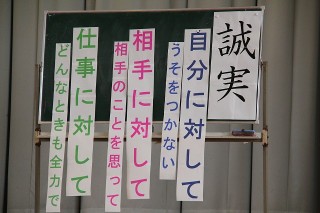 誠実
自分に対して
うそをつかない
相手に対して
相手のことを思って
仕事に対して
どんなときも全力で